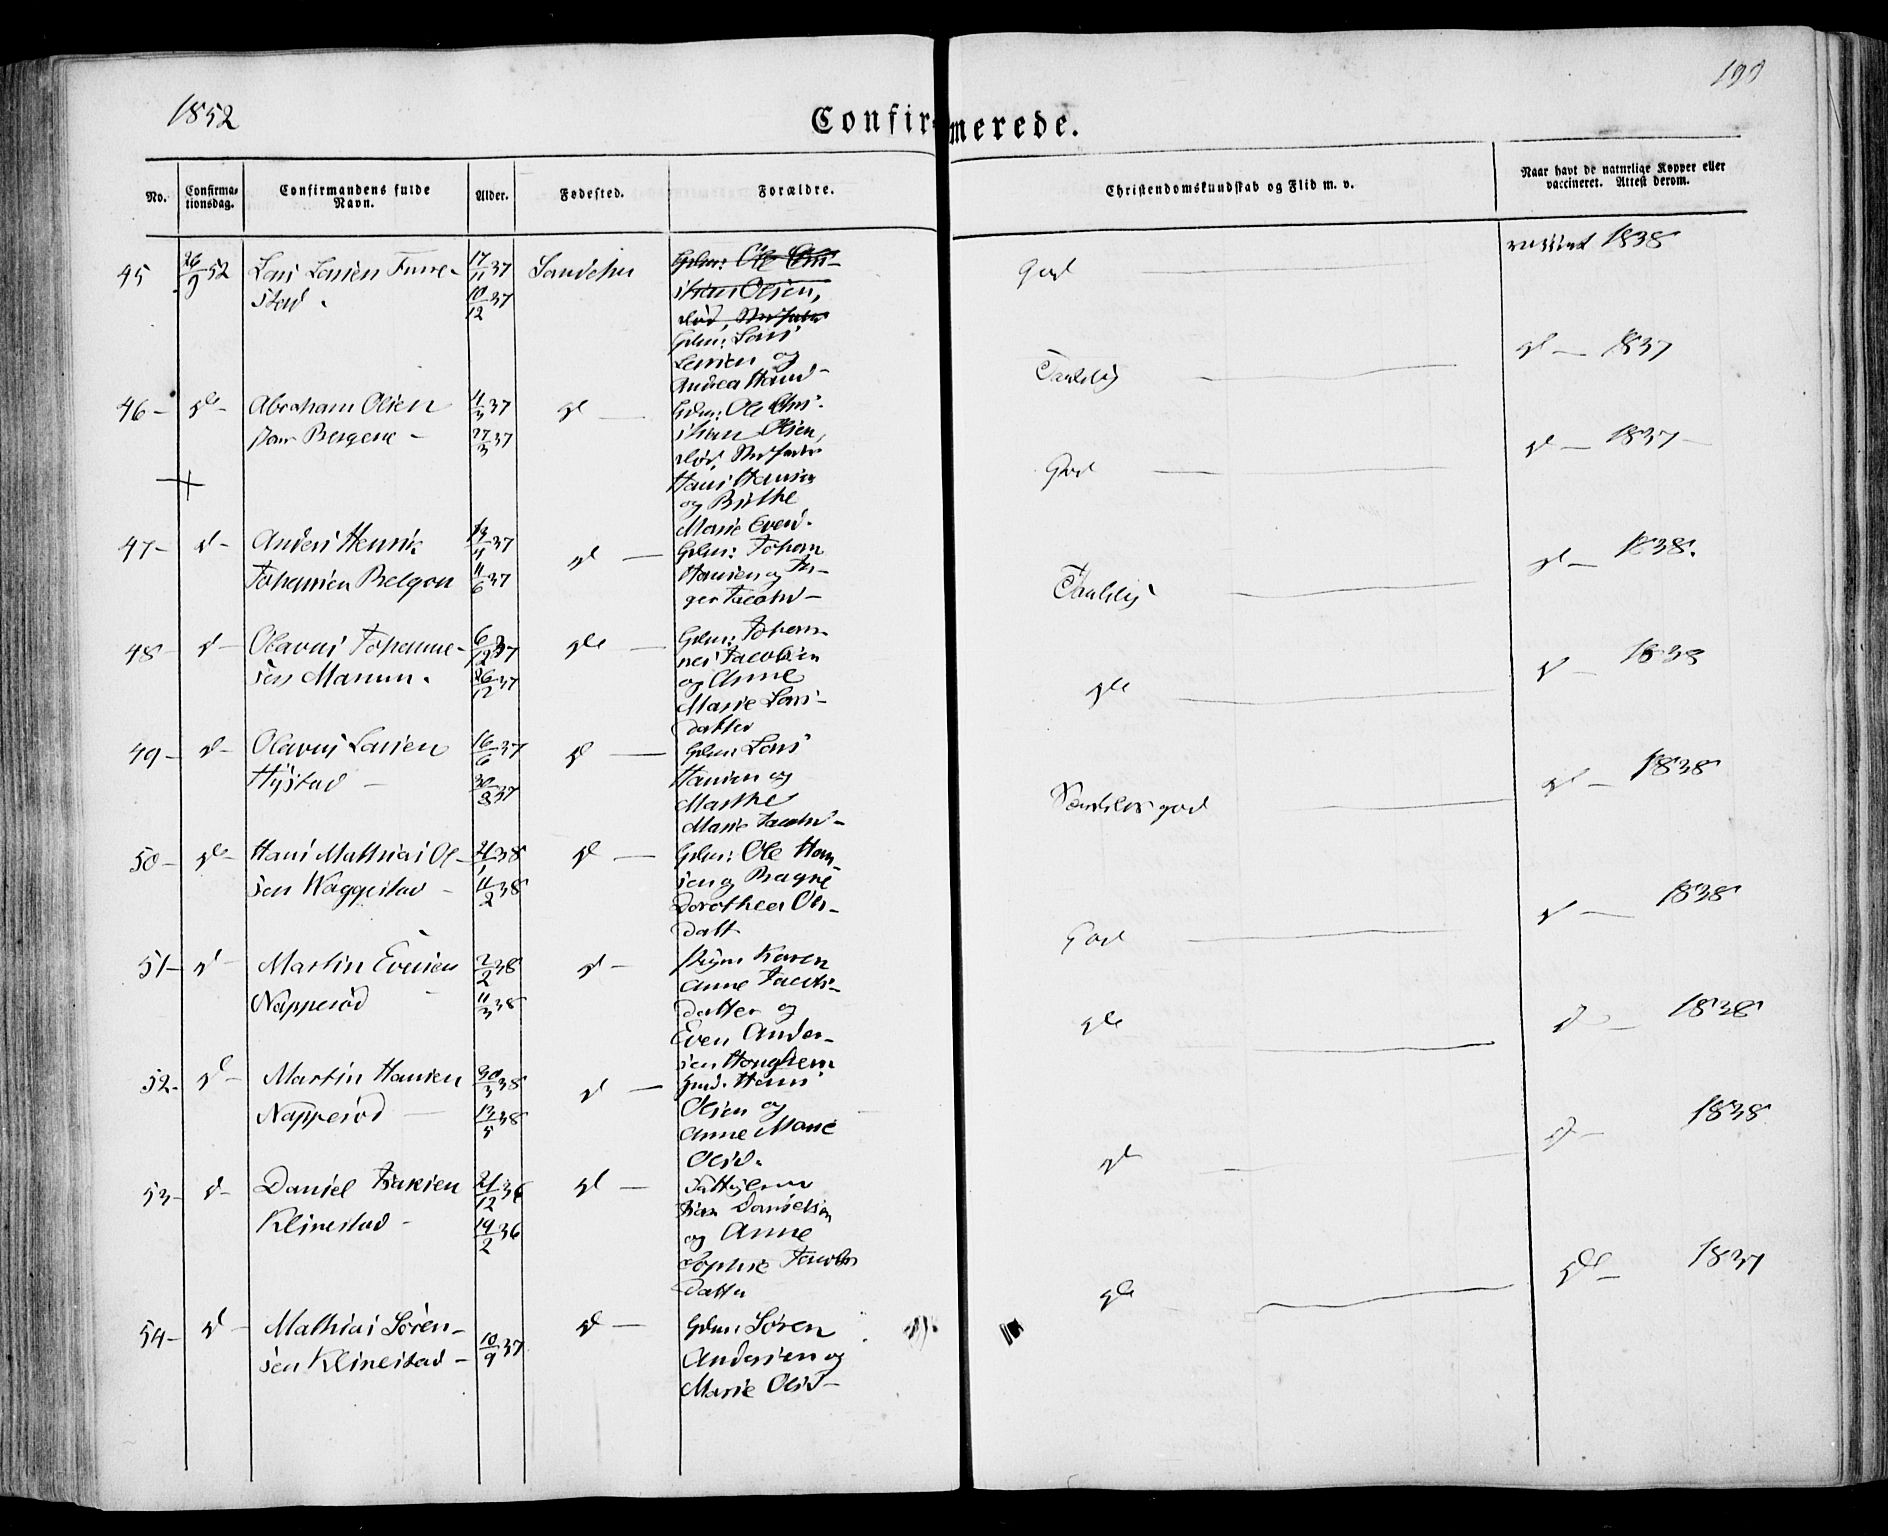 1852
190
Confirmerede.
No.
Confirma-
tionsdag.
Confirmandens fulde
Navn.
Alder.
Fødested.
Forældre.
Christendomskundskab og Flid m. v.
Naar havt de naturlige Kopper eller
vaccineret. Attest derom.
45
26/9 52
Lars Larsen Fure-
stad.
17/11 37
10/12 37
Sandeher
Gdm: Ole Chri-
stian Olsen,
død, Stiffader
Gdm: Lars
Larsen og
Andrea Hansd-
God
vaccinet 1838
46-
do-
Abraham Olsen
fra Bergene-
11/3 37
27/3 37
do
Gdm: Ole Chri-
stian Olsen,
død, Stiffader
Hans Hansen
og Birthe
Marie Evend.
Taalelig
do- 1837
47-
d-
Anders Henrik
Johansen Belgen
13/4 37
11/6 37
do
Gdm: Johan
Hansen og In-
ger Jacobd-
God
do- 1837-
48-
d-
Olavus Johanne-
sen Manum.
6/12 37
26/12 37
do
Gdm: Johan-
nes Jacobsen
og Anne
Marie Lars-
datter
Taalelig
do- 1838.
49-
d-
Olavus Larsen
Hystad-
16/6 37
30/8 37
do
Gdm: Lars
Hansen og
Marthe
Marie Jacobd-
do
d- 1838
50-
do-
Hans Mathias Ol-
sen Waggestad-
21/1 38
11/2 38
do
Gdm: Ole Han-
sen og Ragne
Dorothea Ols-
datt
Taalelig god
do- 1838
51-
d-
Martin Evensen
Napperød
2/2 38
11/3 38
do-
Pigen Karen
Anne Jacobs-
datter og
Even Ander-
sen Haughem
God
d- 1838
52-
d-
Martin Hansen
Napperød-
30/3 38
13/5 38
d-
Hans
Olsen og
Anne Marie
Olsd.
do
d- 1838
53-
d-
Daniel Isaksen
Klinestad-
21/12 36
19/2 36
do-
Danielsen
og Anne
Sophie Jacobs
datter
do
d- 1838
54-
d-
Mathias Søren-
sen Klinestad-
10/9 37
d-
Gdm: Søren
Andersen og
Marie Olsd-
do
do- 1837